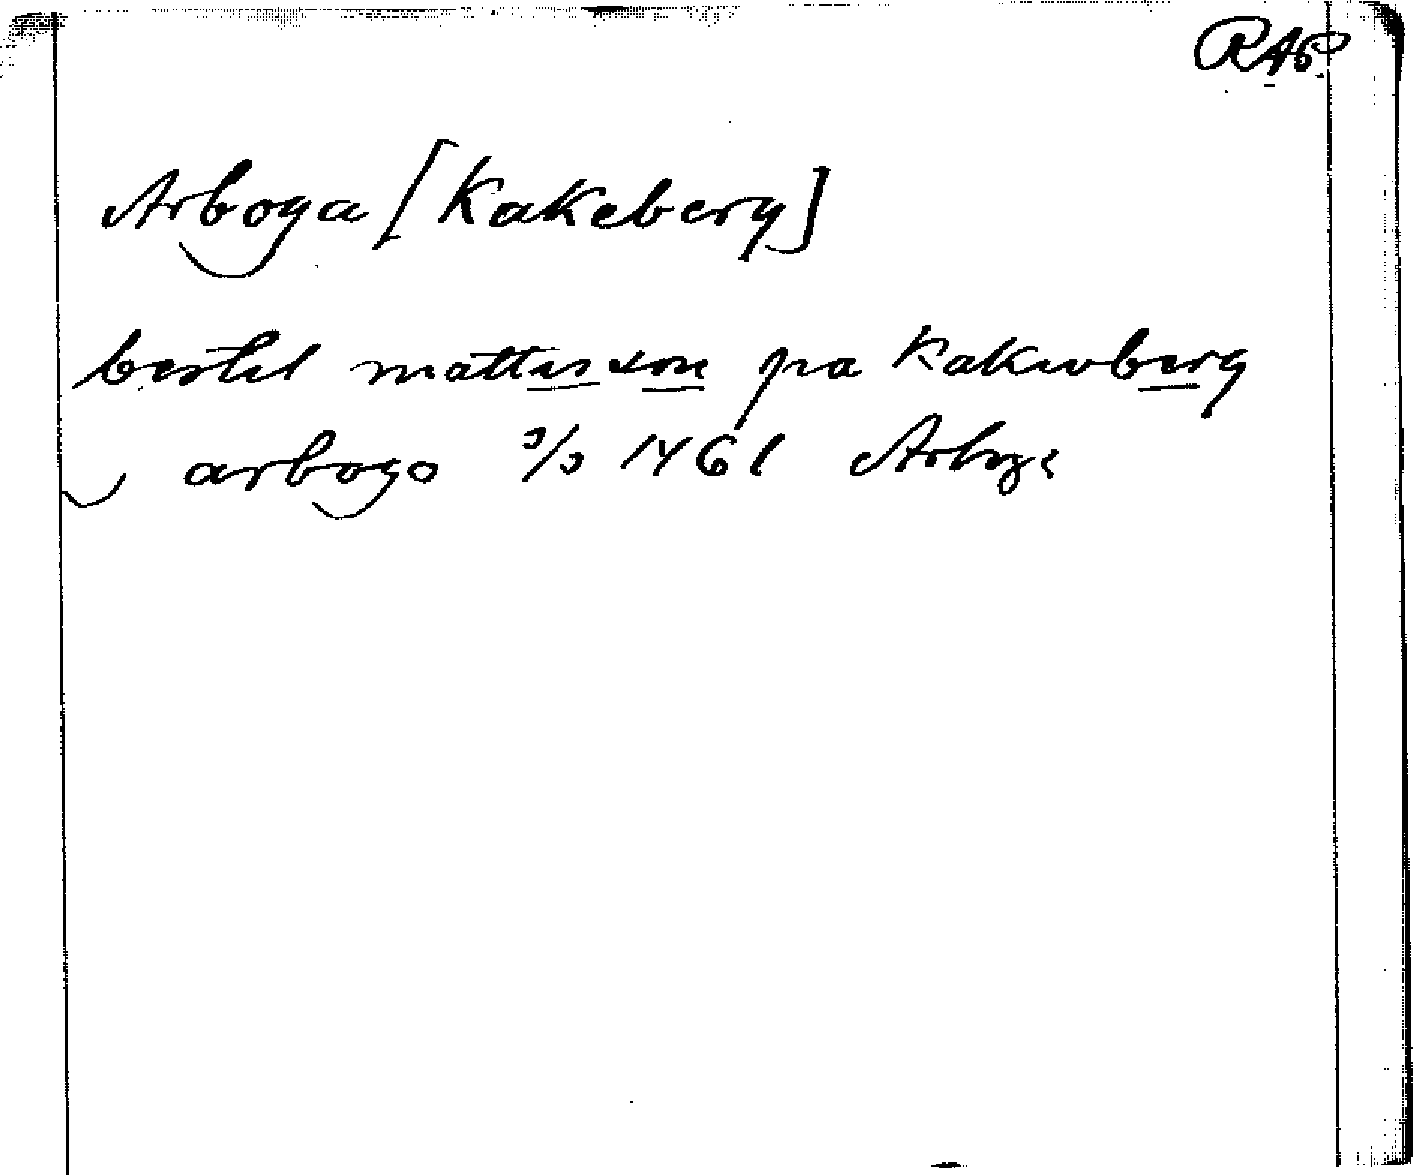 RAp
Arboga [Kakeberg]
bertil mattisson pa kakuberg
i arbogo 3/3 1461 Arboga